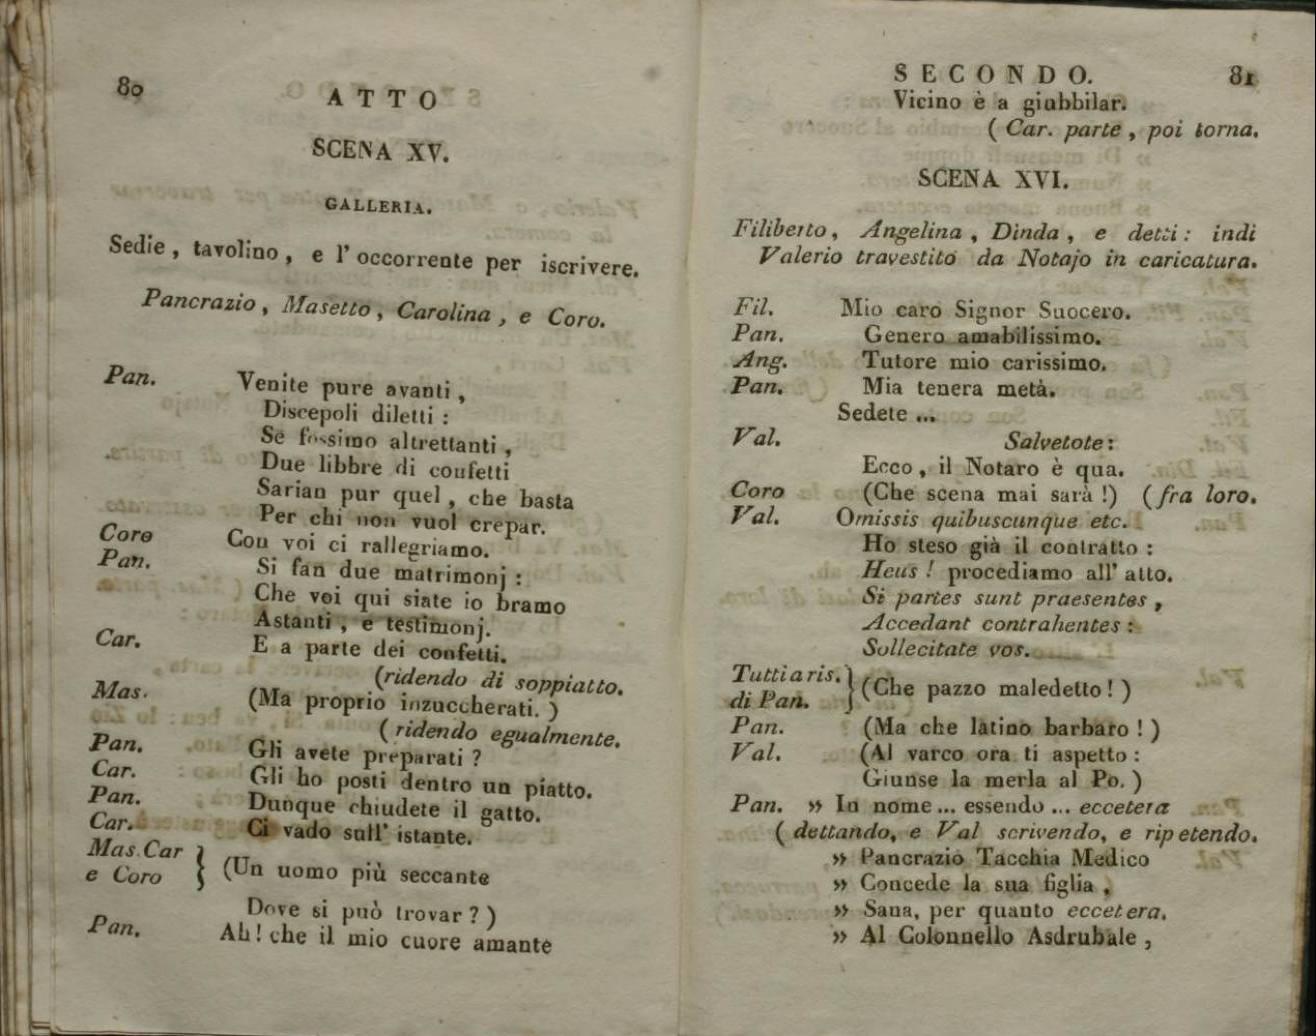 80
ATTO
SCENA XV.
GALLERIA.
Sedie, tavolino, e l'occorrente per iscrivere.
Pancrazio, Masetto, Carolina, e Coro.
Pan. Venite pure avanti,
Discepoli diletti:
Se fossimo altrettanti,
Due libbre di confetti
Sarian pur quel, che basta
Per chi non vuol crepar.
Coro Con voi ci rallegriamo.
Pan. Si fan due matrimonj:
Che voi qui siate io bramo
Astanti, e testimonj.
Car. E a parte dei confetti.
(ridendo di soppiatto.
Mas. (Ma proprio inzuccherati.)
(ridendo egualmente.
Pan. Gli avete preparati?
Car. Gli ho posti dentro un piatto.
Pan. Dunque chiudete il gatto.
Car. Ci vado sull'istante.
Mas. Car
e Coro } (Un uomo più seccante
Dove si può trovar?)
Pan. Ah! che il mio cuore amante
SECONDO. 81
Vicino è a giubbilar.
(Car. parte, poi torna.
SCENA XVI.
Filiberto, Angelina, Dinda, e detti: indi
Valerio travestito da Notajo in caricatura.
Fil. Mio caro Signor Suocero.
Pan. Genero amabilissimo.
Ang. Tutore mio carissimo.
Pan. Mia tenera metà.
Sedete ...
Val. Salvetote:
Ecco, il Notaro è qua.
Coro (Che scena mai sarà!) (fra loro.
Val. Omissis quibuscunque etc.
Ho steso già il contratto:
Heus! procediamo all'atto.
Si partes sunt praesentes,
Accedant contrahentes:
Sollecitate vos.
Tutti a ris.
di Pan. } (Che pazzo maledetto!)
Pan. (Ma che latino barbaro!)
Val. (Al varco ora ti aspetto:
Giunse la merla al Po.)
Pan. » In nome... essendo... eccetera
(dettando, e Val scrivendo, e ripetendo.
» Pancrazio Tacchia Medico
» Concede la sua figlia,
» Sana, per quanto eccetera.
» Al Colonnello Asdrubale,